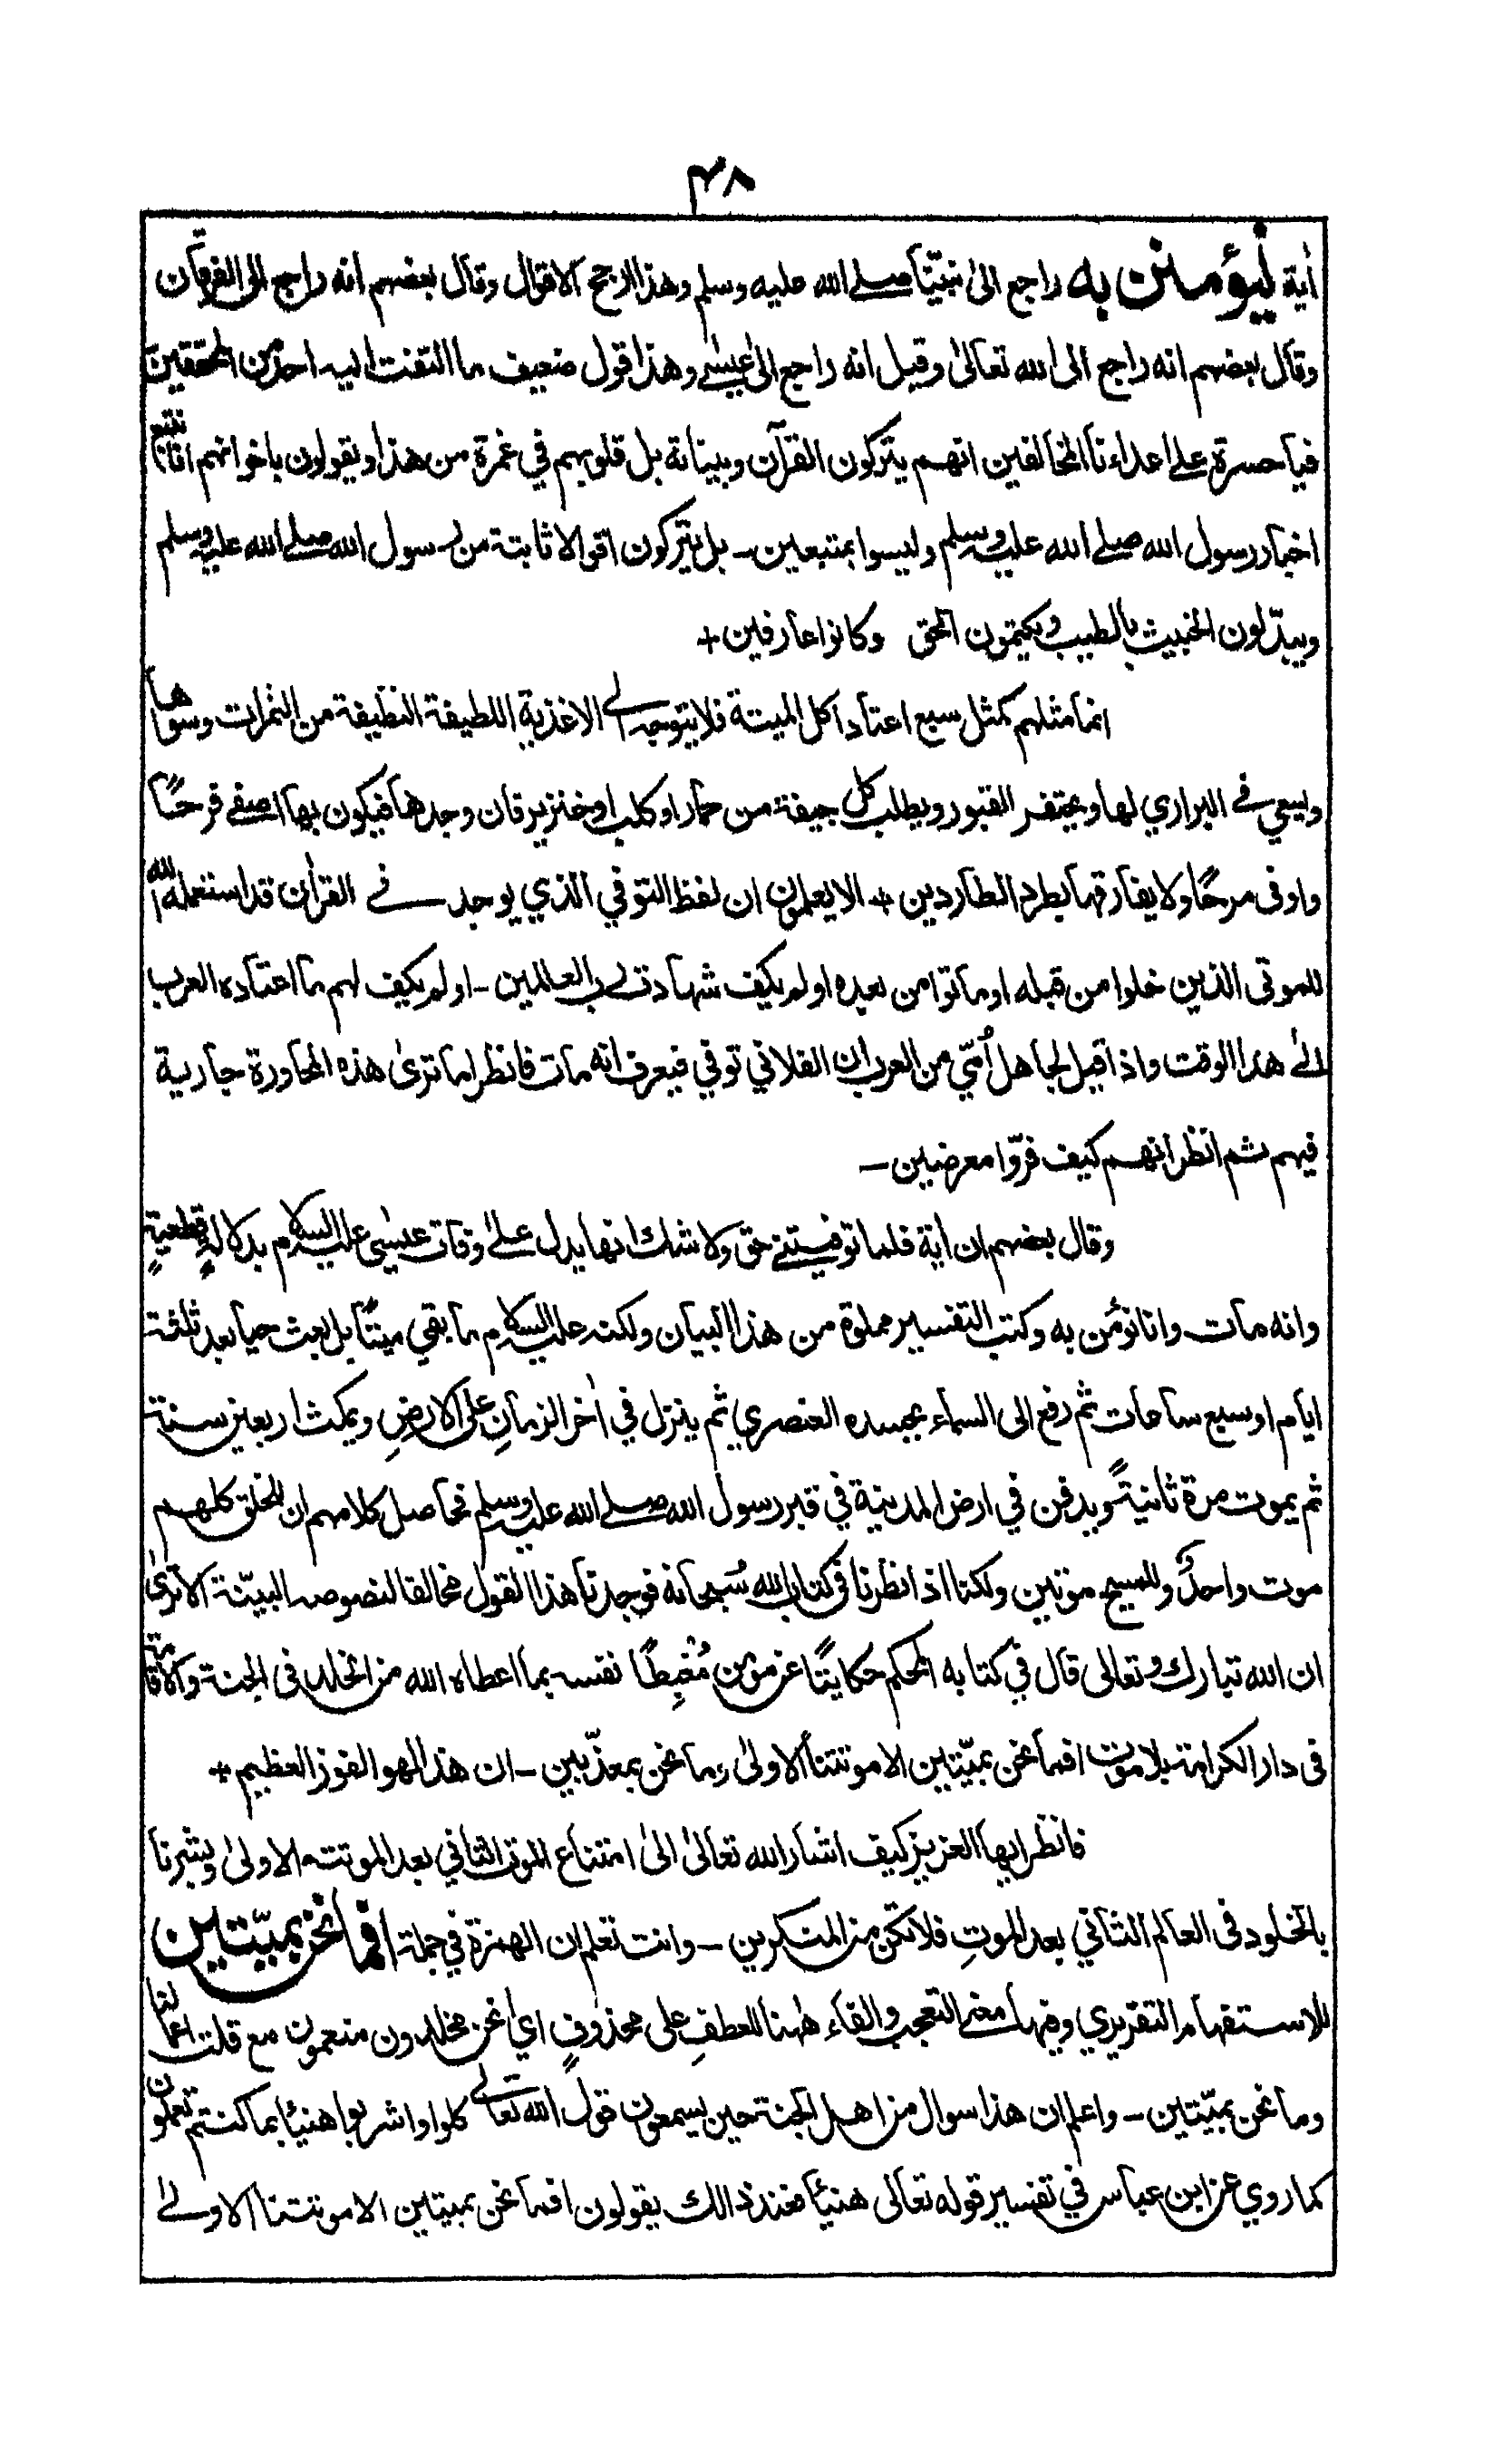 ۴۸
اٰية ليؤمنن به راجع الىٰ نبيّنا صلے الله عليه وسلم وهذا ارجح الاقوال وقال بعضهم انه راجع الى الفرقان
وقال بعضهم انه راجع الى الله تعالىٰ وقيل انه راجع الىٰ عيسٰے وهذا قول ضعيف ما التفت اليه احد من المحققين
فيا حسرة علے اعداءنا المخالفين انهم يتركون القرآن وبيناته بل قلوبهم في غمرة من هذا ويقولون باخوانهم انا نتبع
اخبار رسول الله صلے الله عليه وسلم وليسوا بمتبعين۔ بل يتركون اقوالا ثابتة من رسول الله صلے الله عليه وسلم
ويبدّلون الخبيث بالطيب ويكتمون الحق وكانوا عارفين+
انما مثلهم كمثل سبع اعتاد اكل الميتة فلا يتوجه الے الاغذية اللطيفة النظيفة من الثمرات وسواها
ويسعي فے البراري لها ويحتفر القبور ويطلب كل جيفة من حمار او كلب او خنزير فان وجدها فيكون بها اصفے فرحًا
واوفى مرحًا ولا يفارقها بطرد الطاردين + الا يعلمون ان لفظ التوفي الذي يوجد فے القراٰن قد استعمله الله
للموتى الذين خلوا من قبله او ماتوا من بعده اولم يكف شهادة رب العالمين۔ اولم يكف لهم ما اعتاده العرب
الےٰ هذا الوقت واذا قيل لجاهل اُمّي من العرب ان الفلاني توفي فيعرف انه مات فانظر اما ترىٰ هذه المحاورة جارية
فيهم ثم انظر انهم كيف فرّوا معرضين۔
وقال بعضهم ان اٰية فلما توفيتنے حق ولا شك انها يدل علےٰ وفات عيسٰى عليه السلام بدلالةٍ قطعيةٍ
وانه مات وانا نؤمن به وكتب التفسير مملوة من هذا البيان ولكنه عليه السلام ما بقي ميتًا بل بعث حيا بعد ثلثة
ايام او سبع ساعات ثم رفع الى السماء بجسده العنصري ثم ينزل في اٰخر الزمانِ على الارضِ ويمكث اربعين سنة
ثم يموت مرة ثانيةً ويدفن في ارض المدينة في قبر رسول الله صلے الله عليه وسلم فحاصل كلامهم ان للخلق كلهم
موت واحدٌ وللمسيح موتين ولكنا اذا نظرنا في كتاب الله سُبحانه فوجدنا هذا القول مخالفا لنصوصه البيّنة الا ترىٰ
ان الله تبارك وتعالى قال في كتابه المحكم حكايتًا عن مؤمن مُغبِطًا نفسه بما اعطاه الله من الخلد فى الجنة والاقامة
فى دار الكرامة بلا موت افما نحن بميّتين الا موتتنا الاولىٰ وما نحن بمعذّبين۔ ان هذا لهو الفوز العظيم+
فانظر ايها العزيز كيف اشار الله تعالىٰ الىٰ امتناع الموت الثاني بعد الموتة الاولىٰ وبشرنا
بالخلود فى العالم الثاني بعد الموتِ فلا تكن من المنكرين۔ وانت تعلم ان الهمزة في جملة افما نحن بميّتين
للاستفهام التقريري وفيها معنے التعجب والفاء هٰهنا للعطفِ على محذوفٍ اي أنحن مخلدون منعمون مع قلت اعمالنا
وما نحن بميّتين۔ واعلم ان هذا سوال من اهل الجنة حين يسمعون قول الله تعالے كلوا واشربوا هنيئا بما كنتم تعملون
كما روي عن ابن عباس في تفسير قوله تعالى هنيئا فعند ذالك يقولون افما نحن بميتين الا موتتنا الاولےٰ